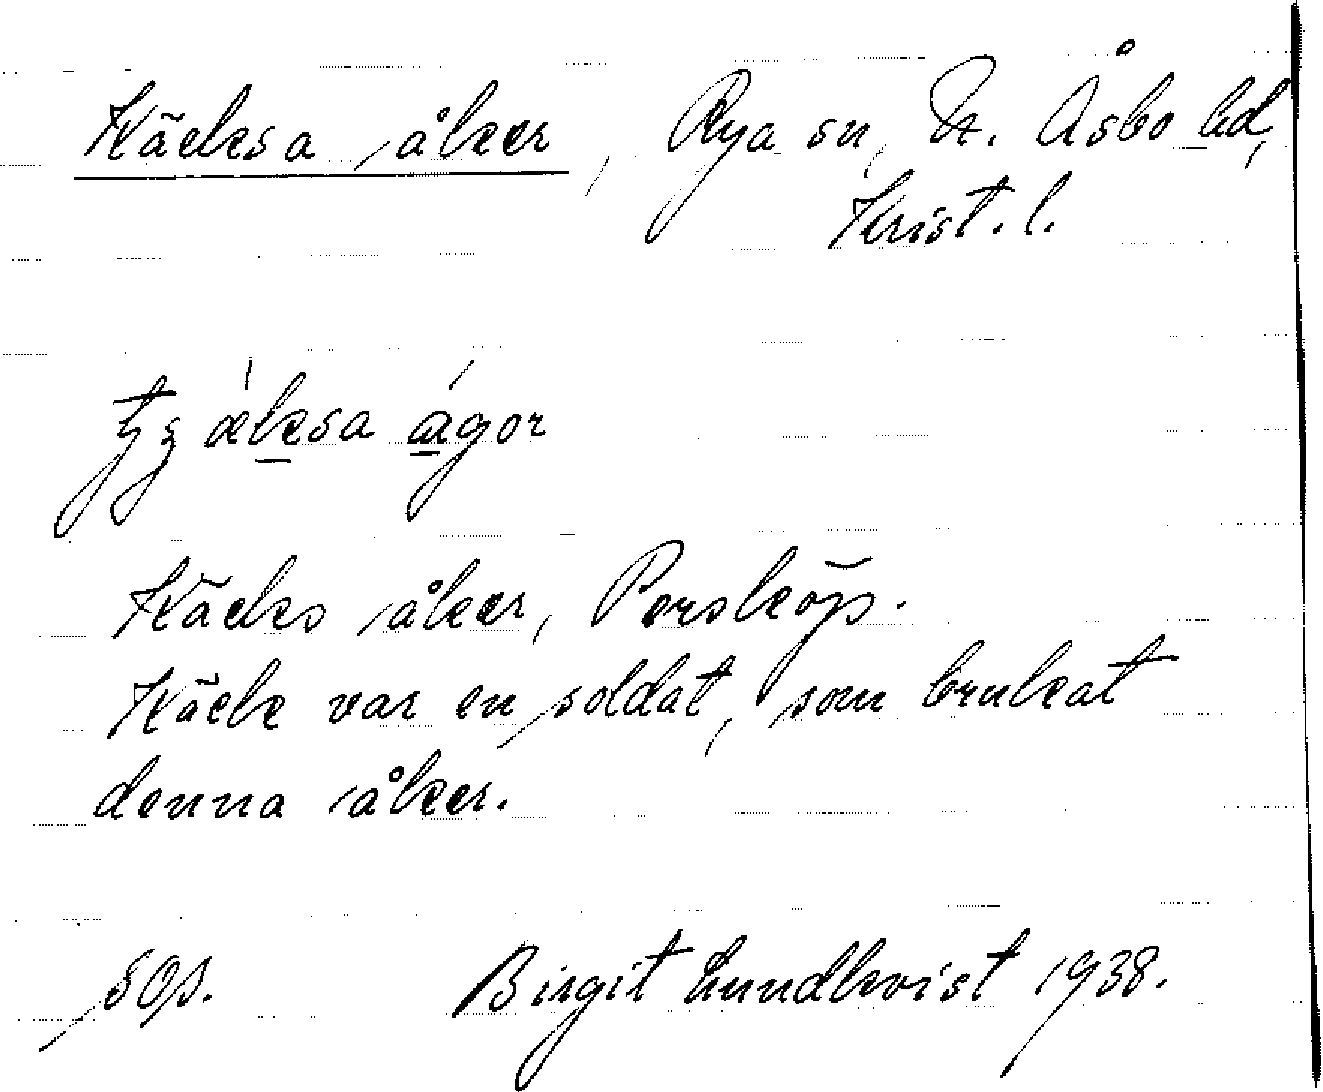 Käcksa åker, Rya sn, N. Åsbo hd,
Krist. l.
älksa ågor
Käcks åker, Perslköp.
Käck var en soldat, som brukat
denna åker.
Birgit Lundkvist 1938.